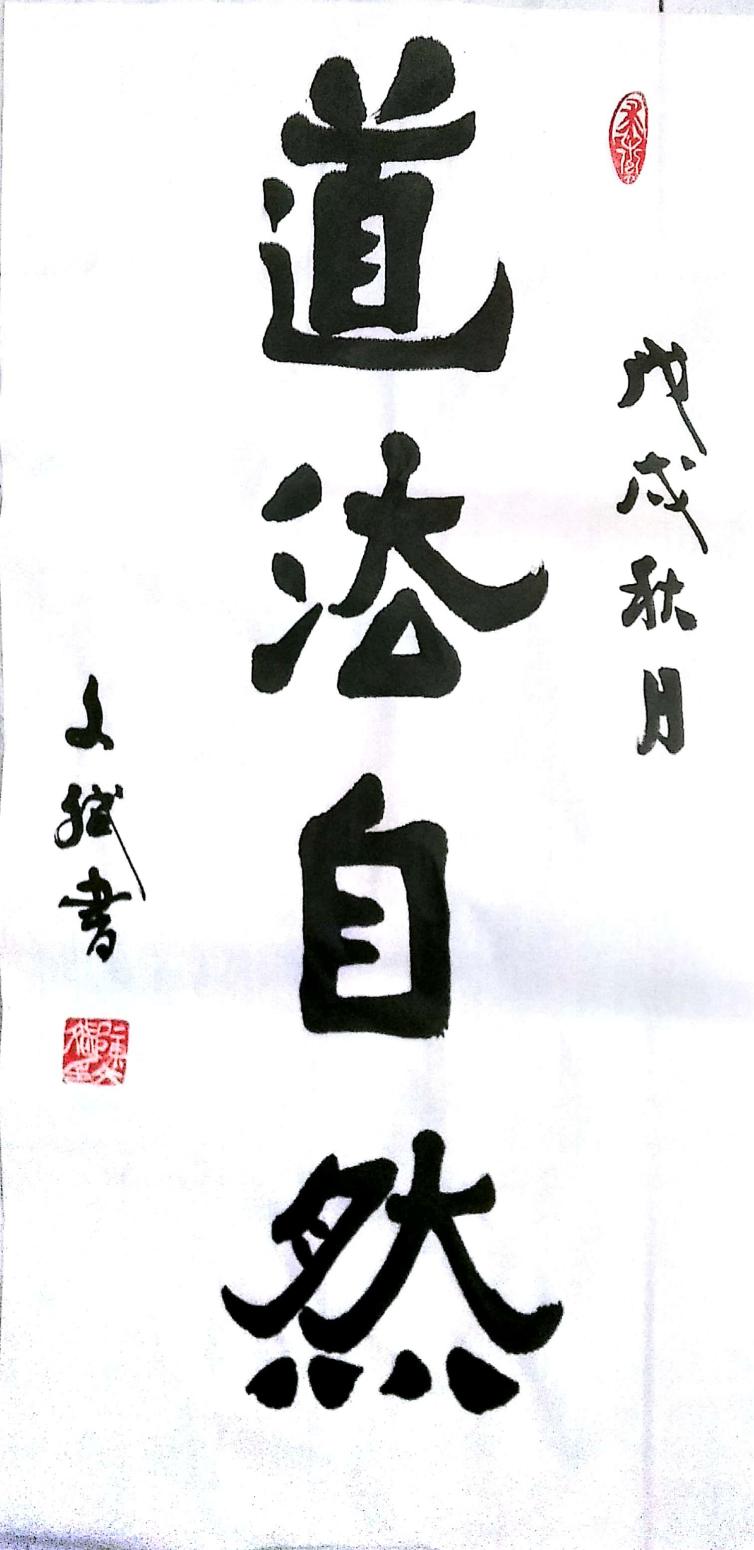 戊戌秋月
道法自然
文斌書